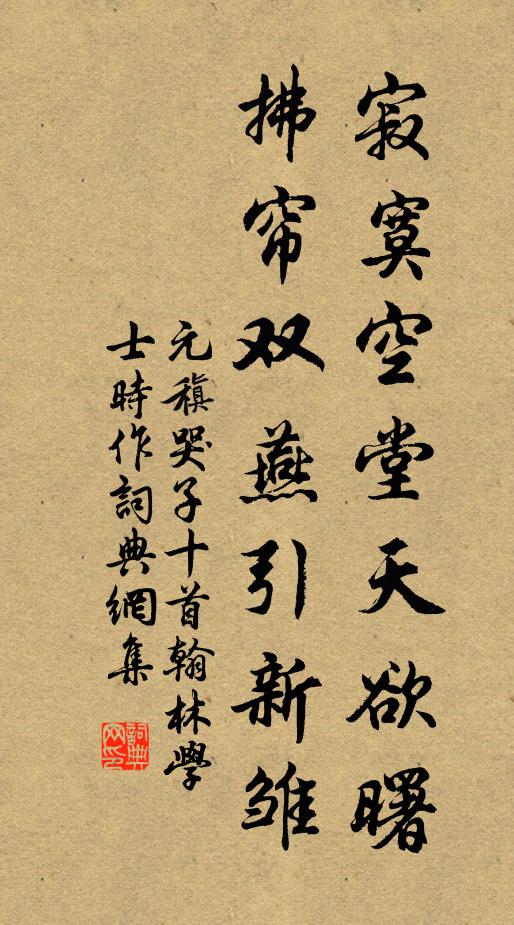 寂寞空堂天欲曙
拂帘双燕引新雏
元稹哭子十首翰林學
士時作詞典網集
詞典网印